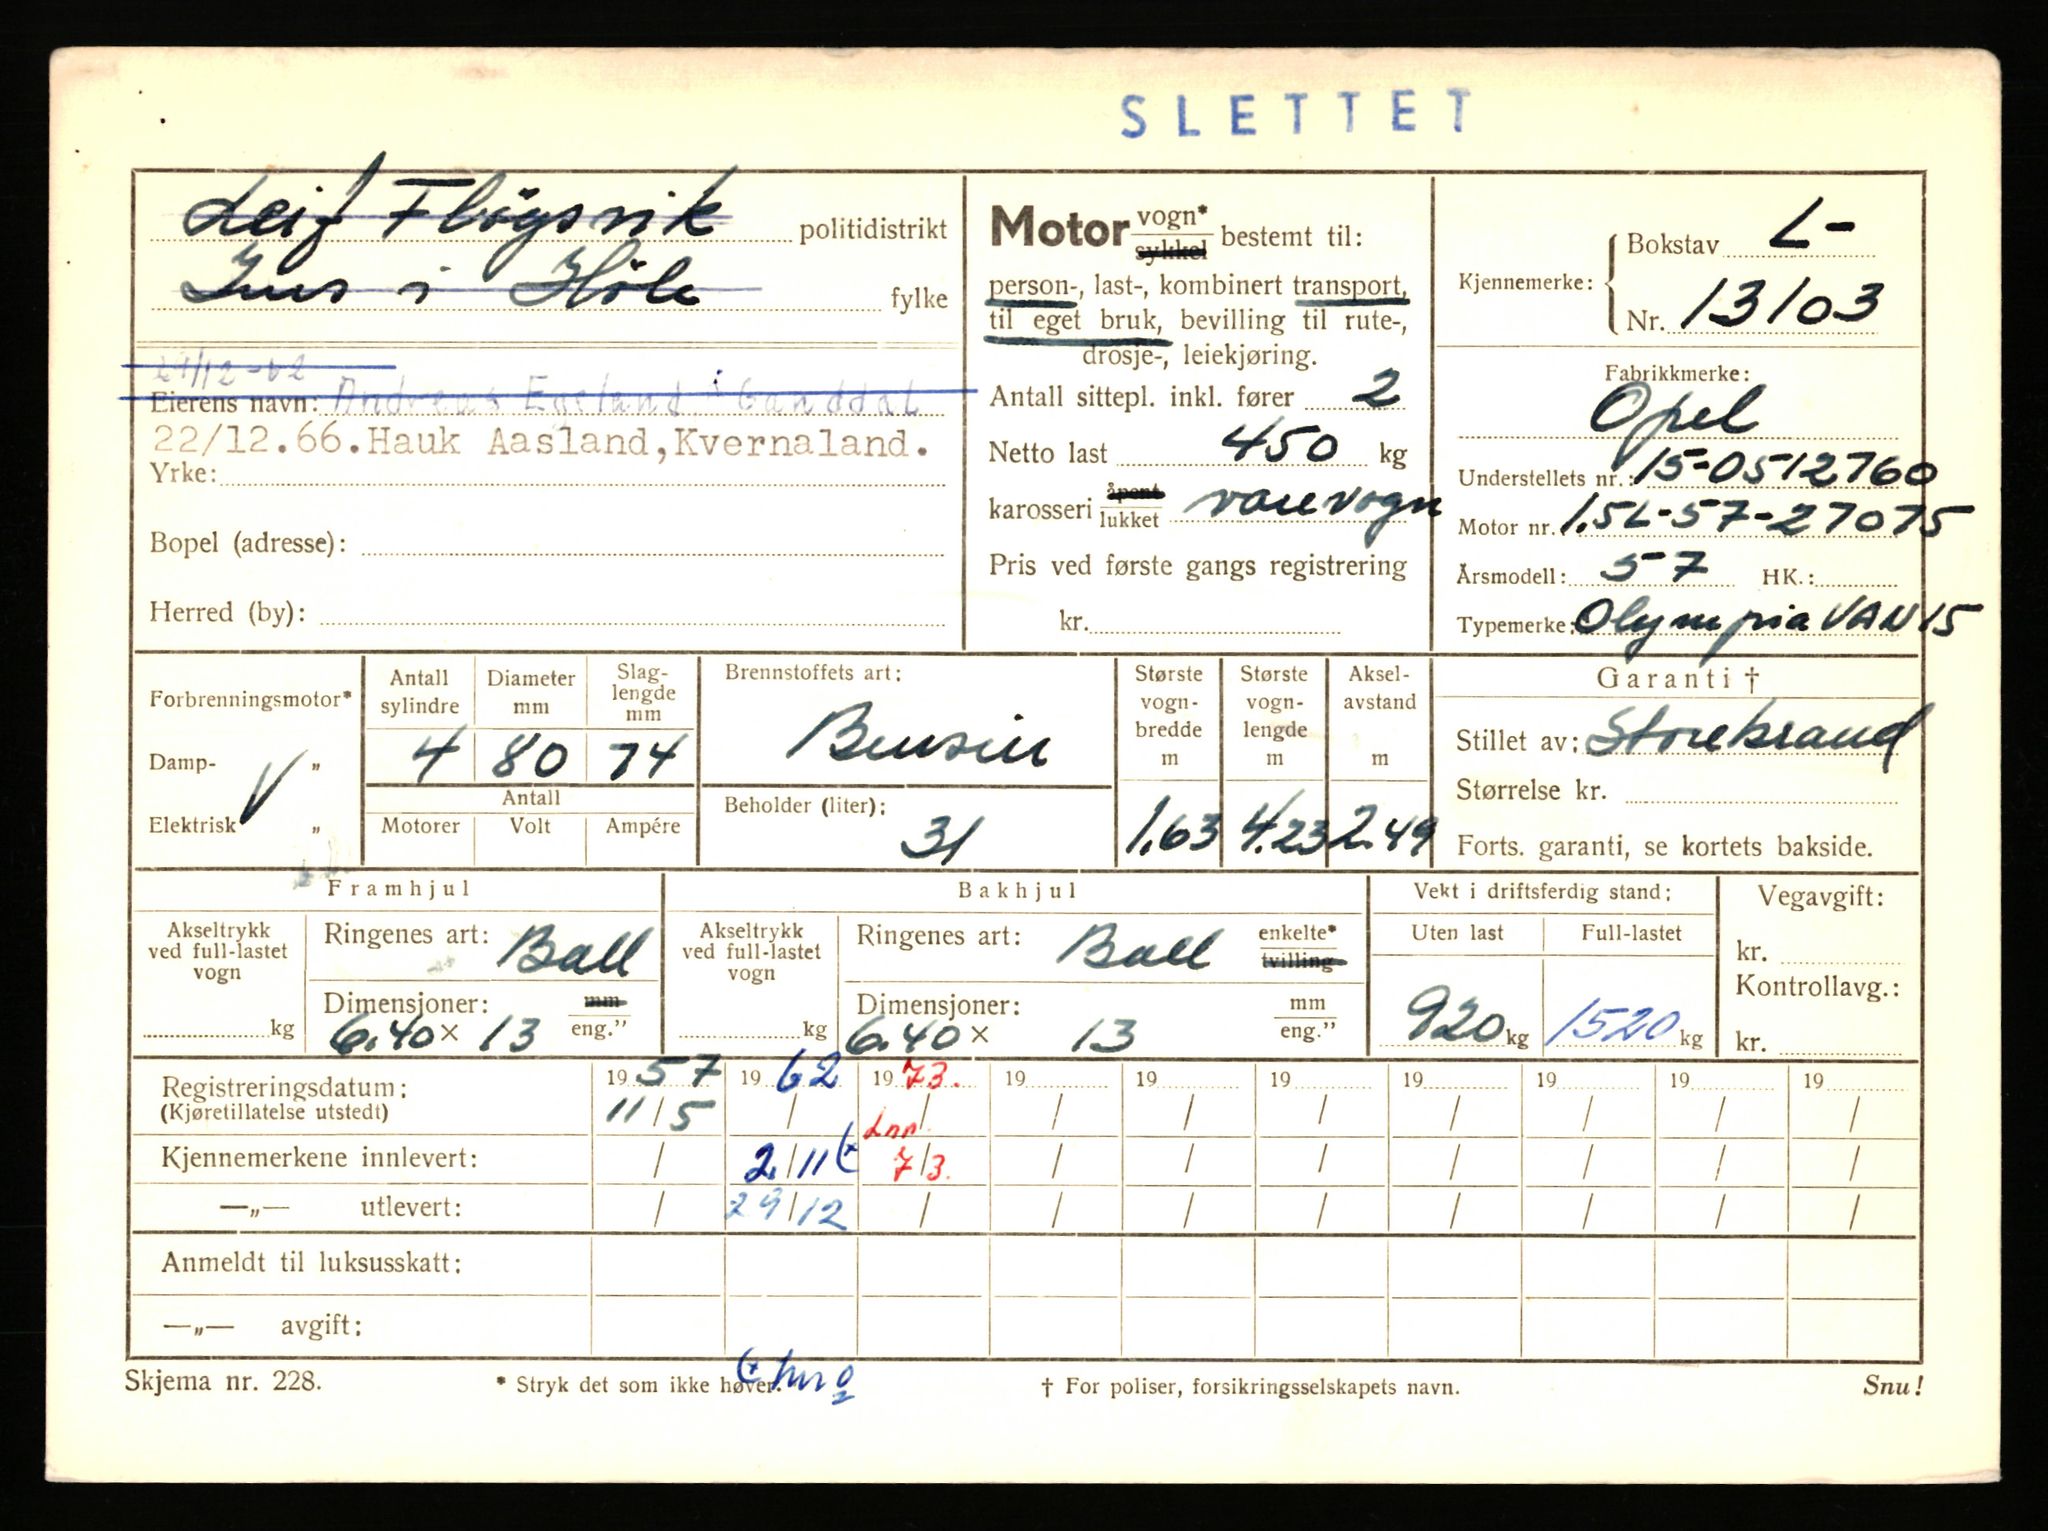 SLETTET
Leif Fløgsvik politidistrikt
i Høle fylke
29/12-62
Eierens navn: Andreas Egeland Ganddal
22/12.66.Hauk Aasland,Kvernaland.
Yrke:
Bopel (adresse):
Herred (by):
Motor vogn* sykkel bestemt til:
person-, last-, kombinert transport,
til eget bruk, bevilling til rute-,
drosje-, leiekjøring.
Antall sittepl. inkl. fører 2
Netto last 450 kg
karosseri åpent lukket varevogn
Pris ved første gangs registrering
kr.
Kjennemerke:
Bokstav L-
Nr. 13103
Fabrikkmerke:
Opel
Understellets nr.: 15-0512760
Motor nr. 1.5L-57-27075
Årsmodell: 57 HK.:
Typemerke: Olympia VAN 15
Forbrenningsmotor*
Damp- „
Elektrisk V „
Antall sylindre
4
Diameter mm
80
Slag-lengde mm
74
Antall
Motorer Volt Ampére
Brennstoffets art:
Bensin
Beholder (liter):
31
Største vogn-bredde m
1.63
Største vogn-lengde m
4.23
Aksel-avstand m
2.49
Garanti †
Stillet av: Storebrand
Størrelse kr.
Forts. garanti, se kortets bakside.
Framhjul
Akseltrykk ved full-lastet vogn
kg
Ringenes art: Ball
Dimensjoner: mm
6.40 × 13 eng.”
Bakhjul
Akseltrykk ved full-lastet vogn
kg
Ringenes art: Ball enkelte* tvilling
Dimensjoner: mm
6.40 × 13 eng.”
Vekt i driftsferdig stand:
Uten last Full-lastet
920 kg 1520 kg
Vegavgift:
kr.
Kontrollavg.:
kr.
Registreringsdatum: 19 57 19 62 19 73. 19 19 19 19 19 19 19
(Kjøretillatelse utstedt) 11/5 / / / / / / / / /
Kjennemerkene innlevert: / 2/11 (* 7/3. / / / / / / /
—„— utlevert: / 29/12 / / / / / / / /
Anmeldt til luksusskatt:
—„— avgift:
Skjema nr. 228. * Stryk det som ikke høver. † For poliser, forsikringsselskapets navn. Snu!